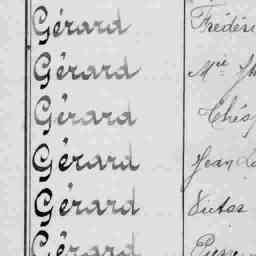 Gérard Frédéri
Gérard Mie
Gérard Thés
Gérard Jean L
Gérard Victor
Gérard Pierre